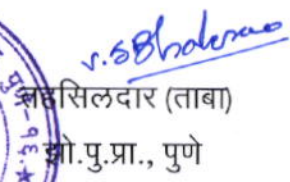 v.s Bhalerao
तहसिलदार (ताबा)
झो.पु.प्रा., पुणे